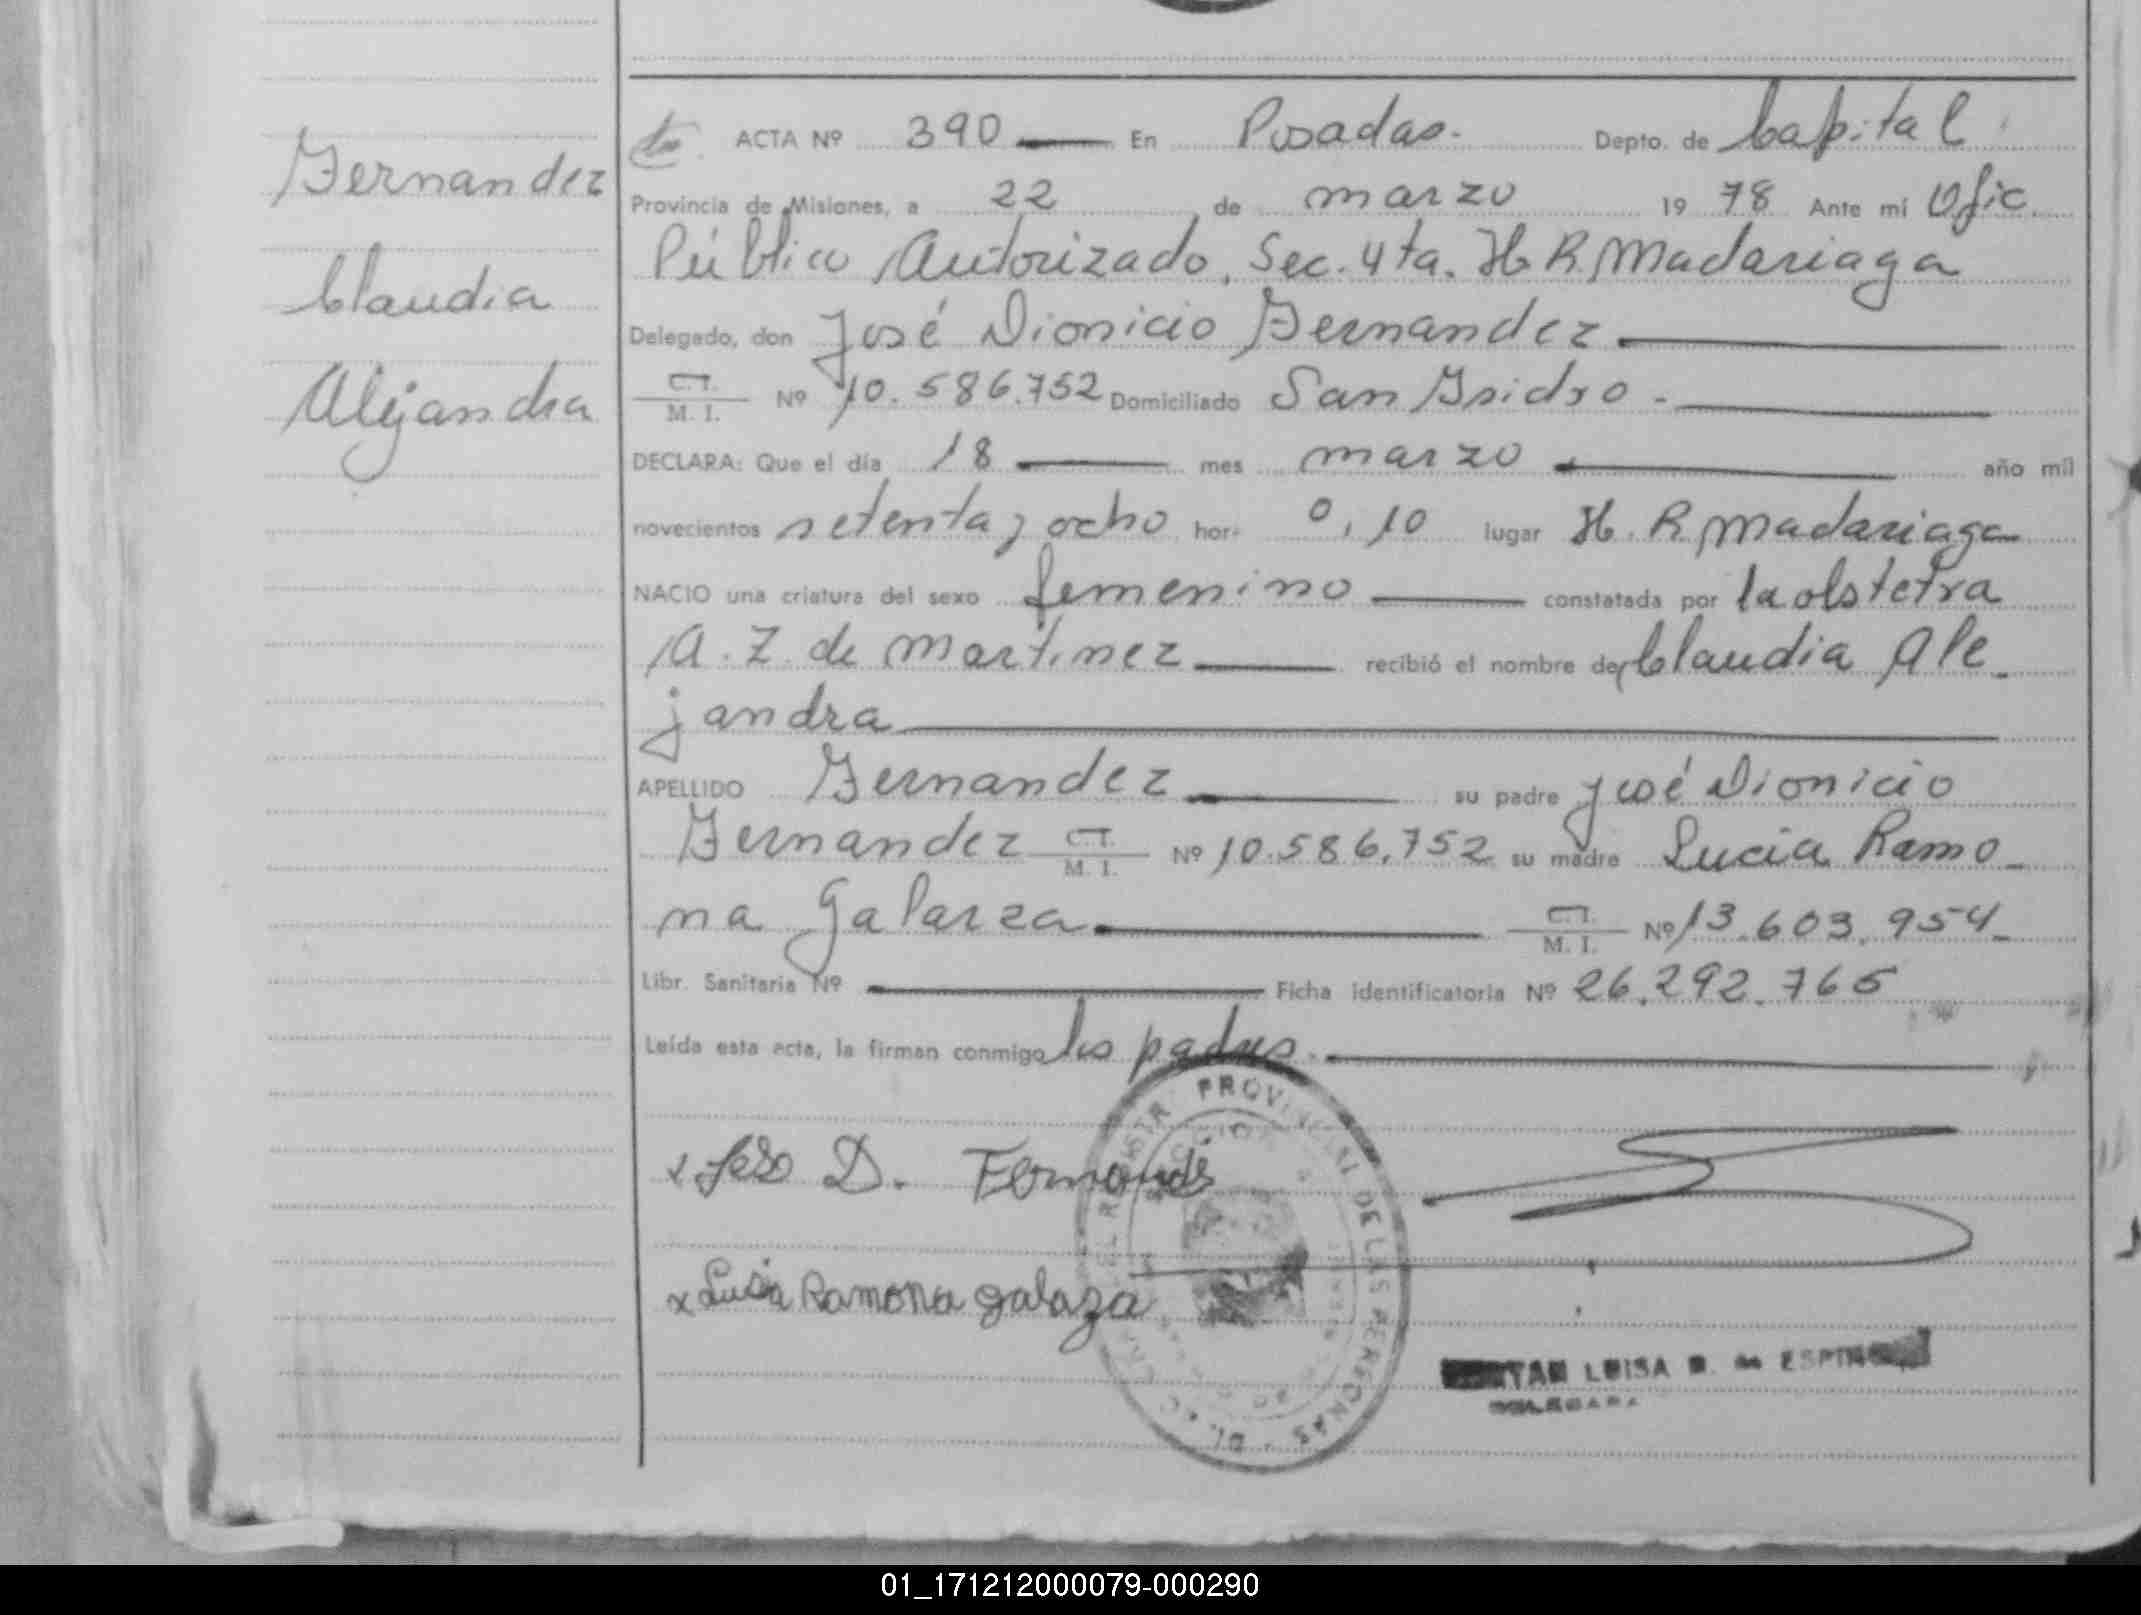 Fernandez
Claudia
Alejandra
ACTA Nº 390 En Posadas. Depto. de Capital
Provincia de Misiones, a 22 de marzo 19 78 Ante mí Ofic.
Público Autorizado, Sec. 4ta. H R. Madariaga
Delegado, don José Dionicio Fernandez
C.I. M. I. Nº 10.586.752 Domiciliado San Isidro.-
DECLARA: Que el día 18 mes marzo año mil
novecientos setenta y ocho hor. 0,10 lugar H. R. Madariaga
NACIO una criatura del sexo femenino constatada por la obstetra
A. Z. de Martinez recibió el nombre de Claudia Ale-
jandra
APELLIDO Fernandez su padre José Dionicio
Fernandez C.I. M. I. Nº 10.586.752 su madre Lucia Ramo-
na Galarza C.I. M. I. Nº 13.603.954-
Libr. Sanitaria Nº Ficha identificatoria Nº 26.292.765
Leída esta acta, la firman conmigo los padres.
x D. Fernandes
x Lusia Ramona galaza
PROVINCIAL DE LAS PERSONAS
LUISA
01_171212000079-000290